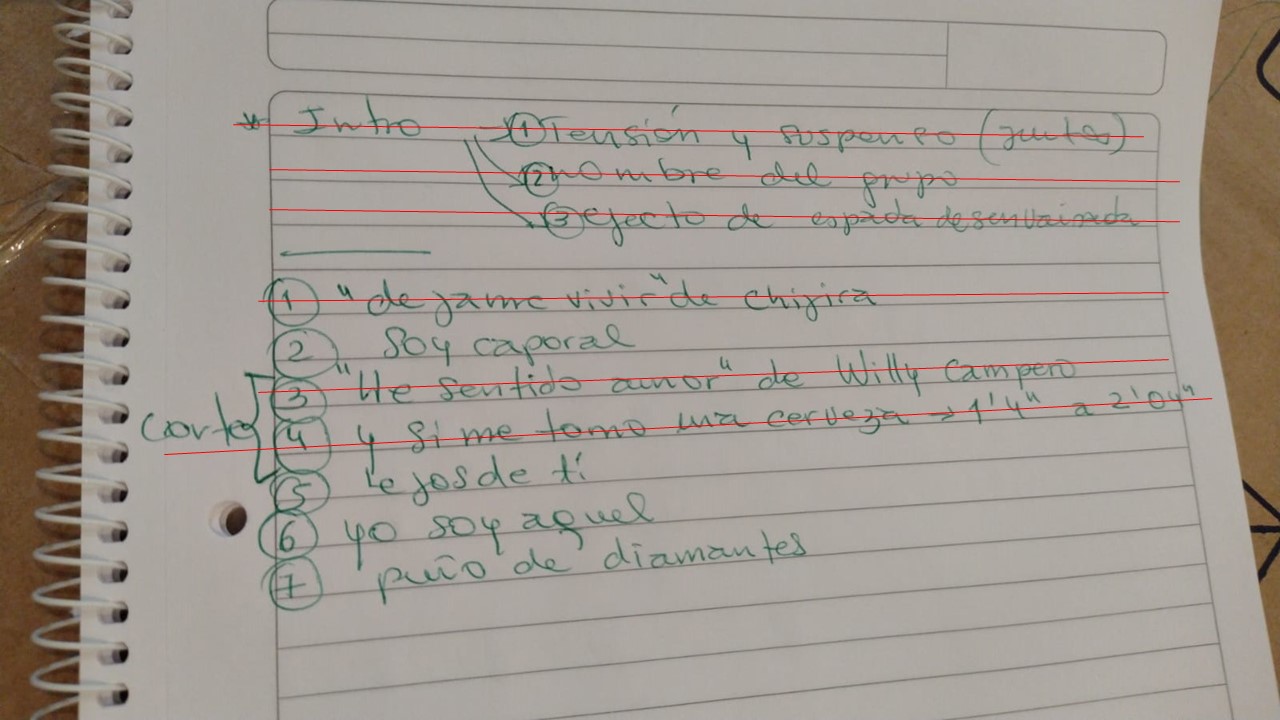 * Intro → ① Tensión y suspenso (juntos)
② nombre del grupo
③ efecto de espada desenvainada
① "dejame vivir" de chijira
② Soy caporal
③ "He sentido amor" de Willy Campero
cortes ④ y si me tomo una cerveza → 1'4" a 2'04"
⑤ lejos de tí
⑥ yo soy aquel
⑦ puño de diamantes